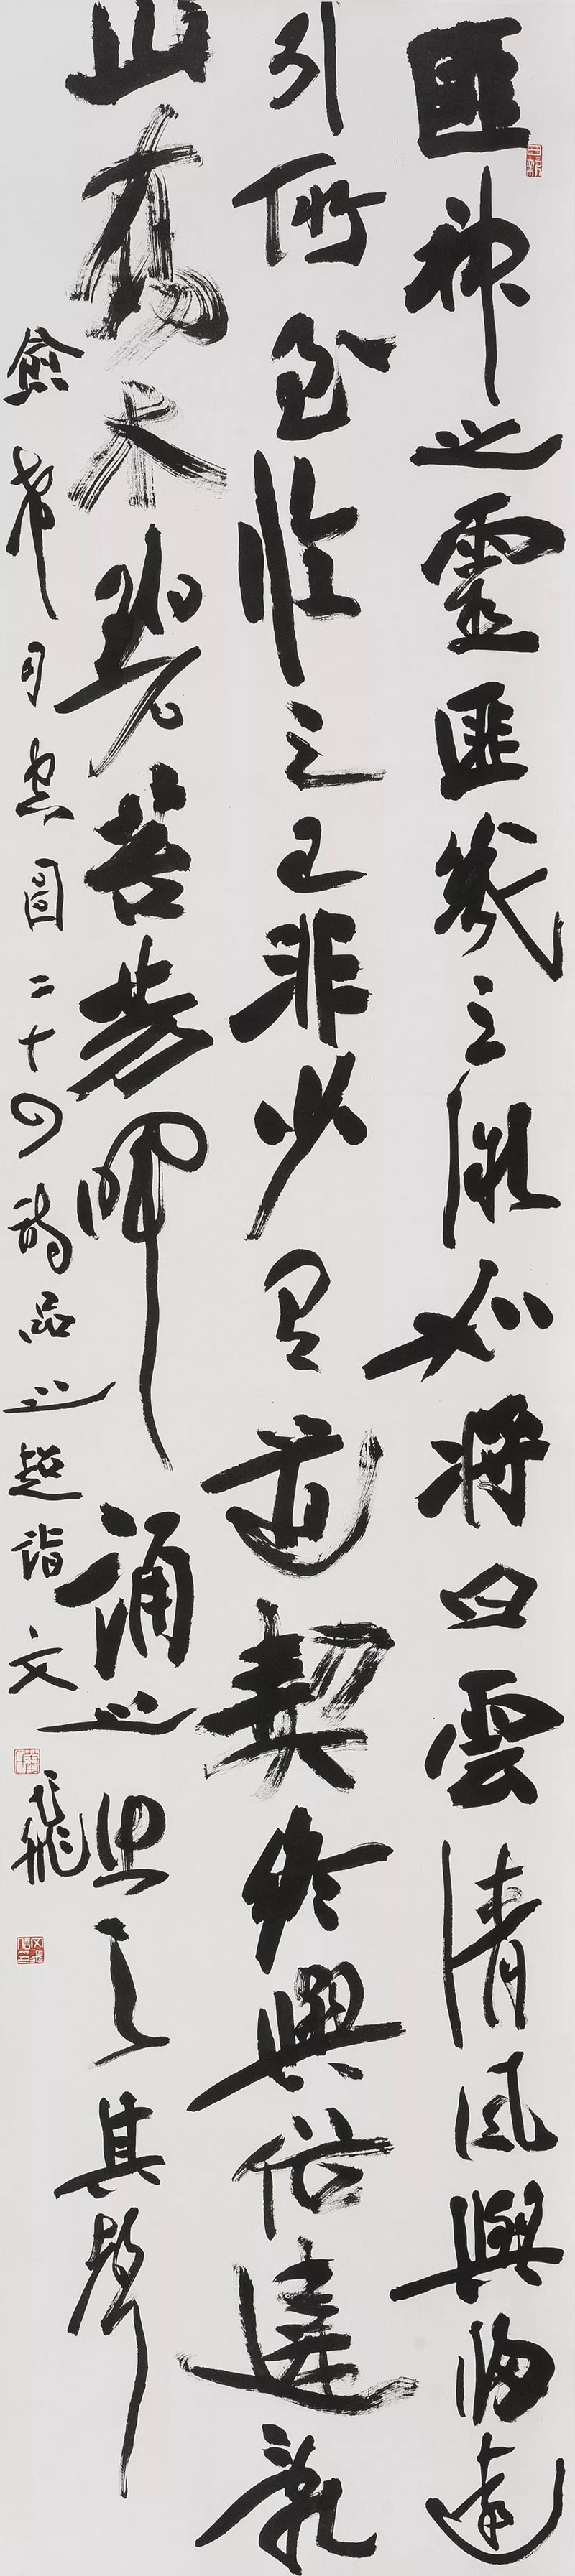 匪神之靈匪幾之微如將白雲清風與歸遠
引所至臨之已非少有道契終與俗違亂
山喬木碧苔芳暉誦之思之其聲
愈希司空圖二十四詩品之超詣文飛